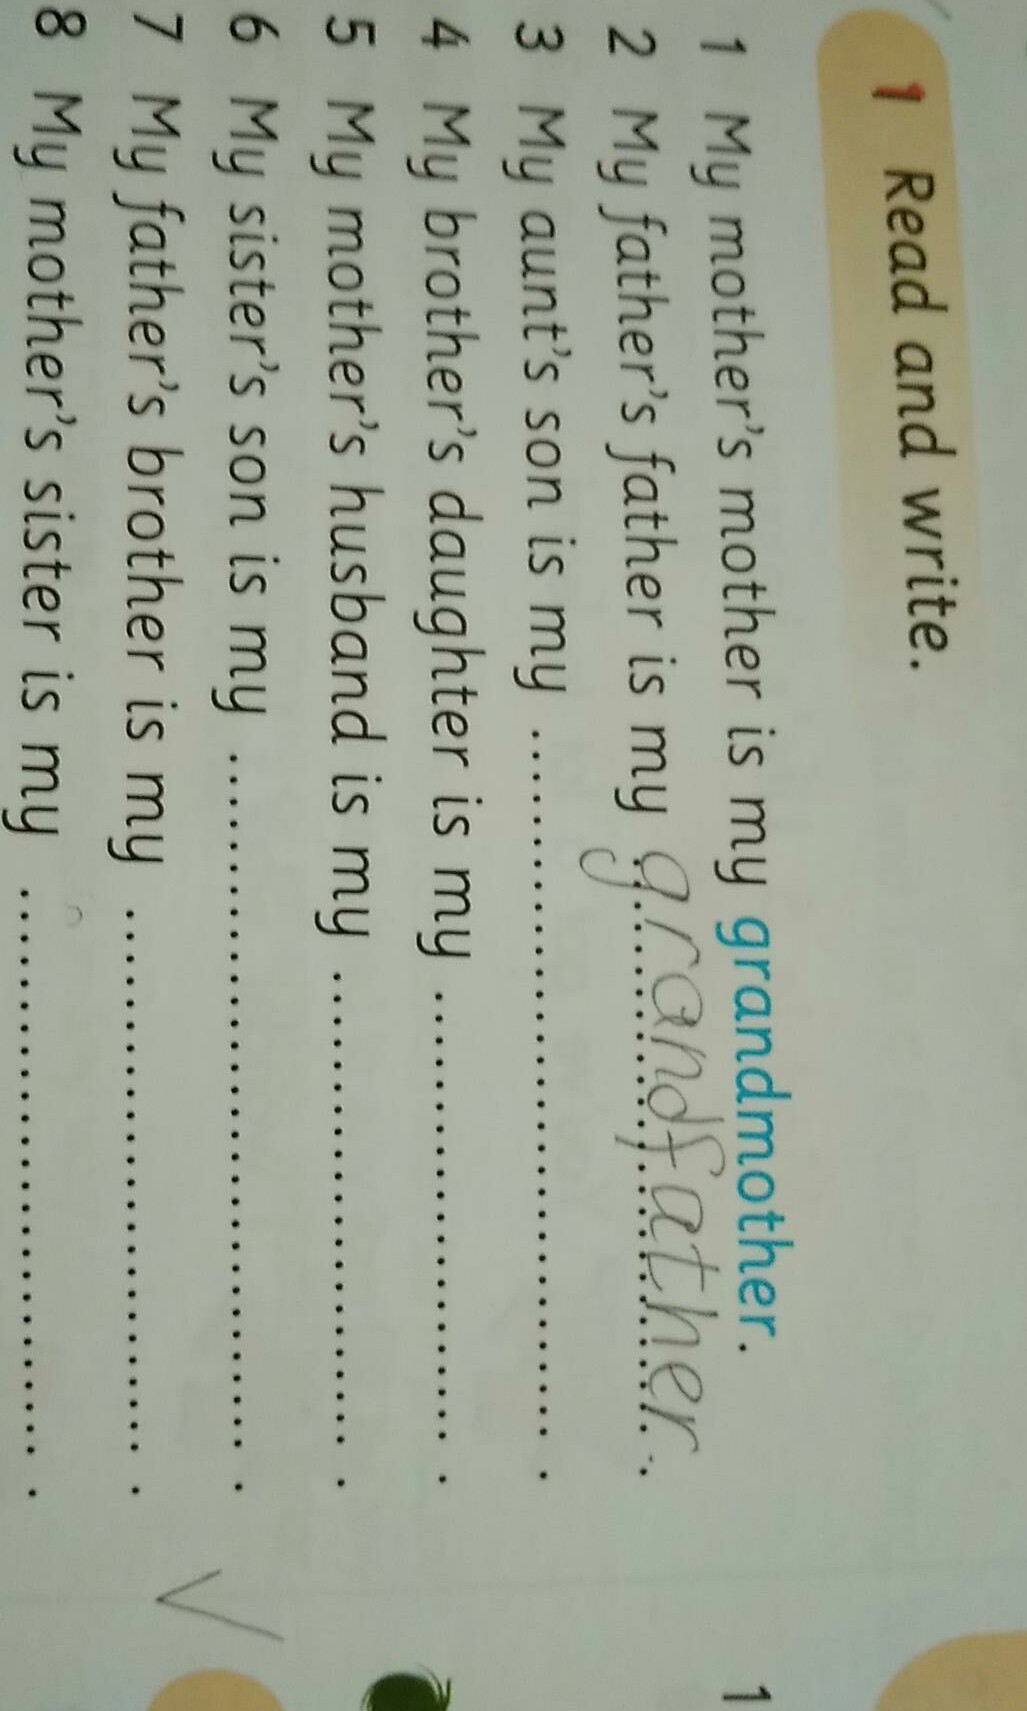 1 Read and write.
1 My mother's mother is my grandmother.
2 My father's father is my grandfather.
3 My aunt's son is my ........................................ .
4 My brother's daughter is my ........................ .
5 My mother's husband is my ........................ .
6 My sister's son is my ........................................ .
7 My father's brother is my ............................... .
8 My mother's sister is my ................................ .
1